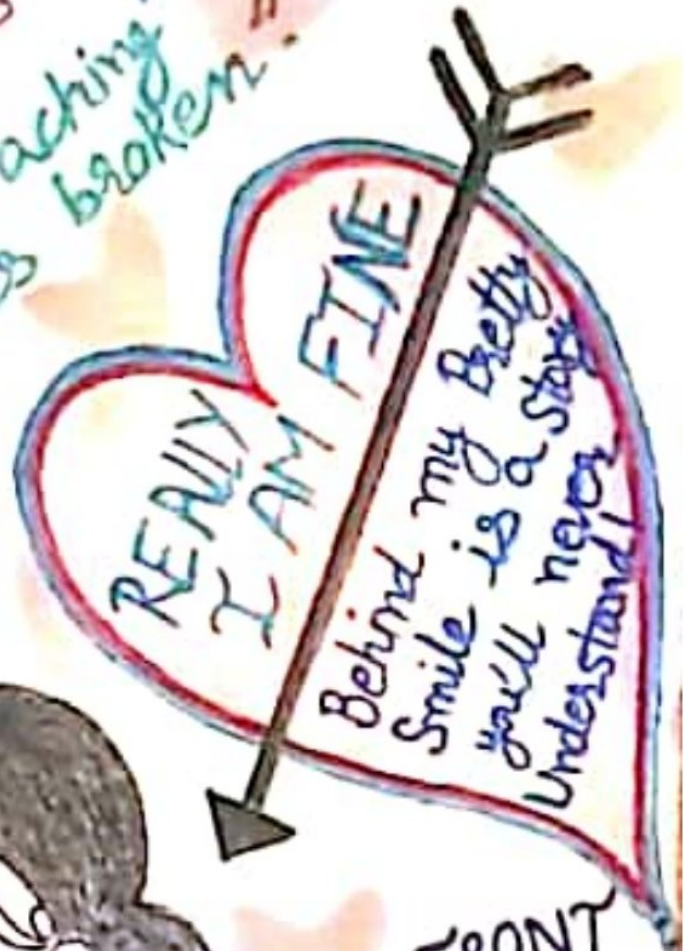 aching
broken.
REALLY
I AM FINE
Behind my Pretty
Smile is a story
you'll never
Understand!